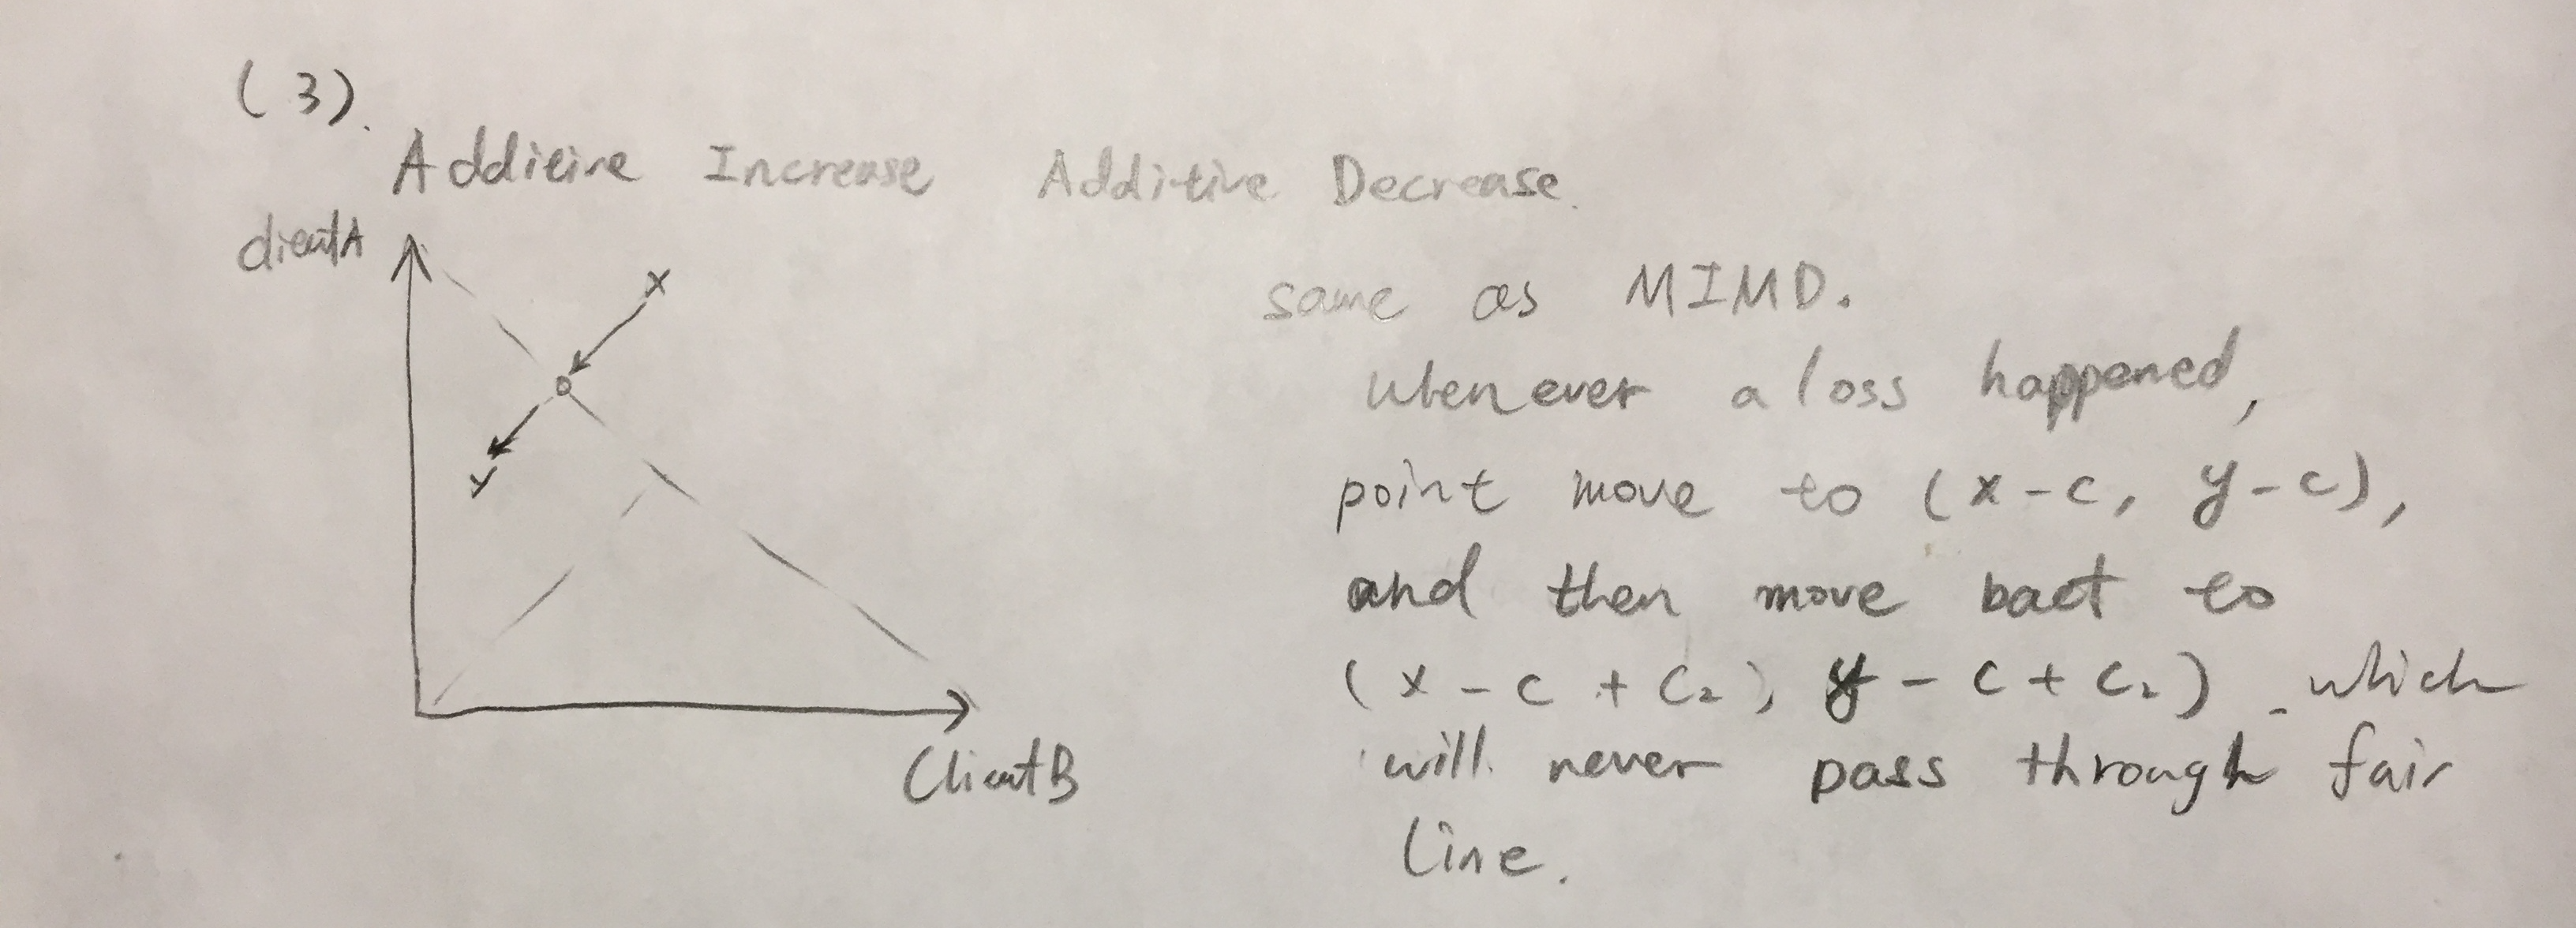 (3).
Additive Increase Additive Decrease.
clientA
x
y
ClientB
same as MIMD.
whenever a loss happened,
point move to (x-c, y-c),
and then move bact to
(x-c+c₂, y-c+c₂) which
will never pass through fair
line.